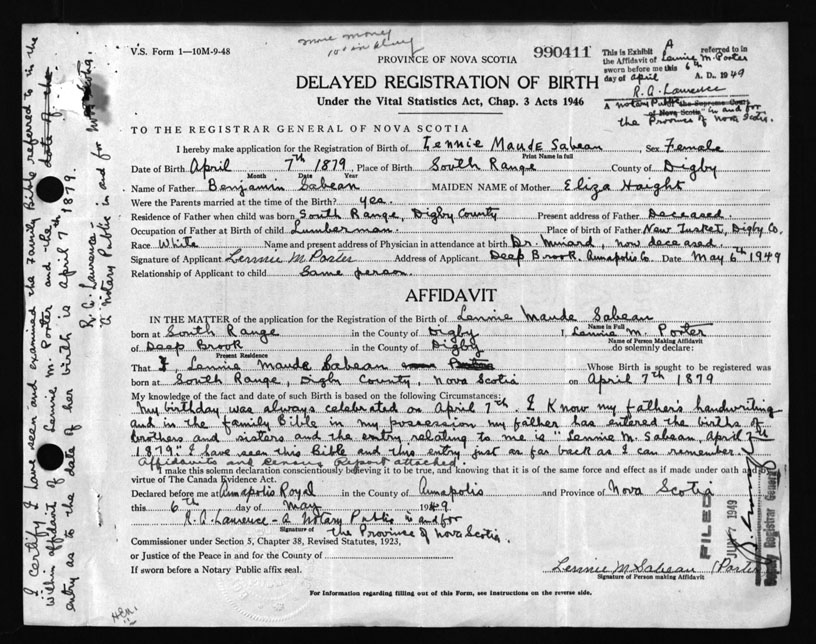 V.S. Form 1—10M-9-48
more money
PROVINCE OF NOVA SCOTIA
990411
This is Exhibit A referred to in
the Affidavit of Lennie M. Porter
sworn before me this 6th
day of April A. D. 1949
R. A. Lawrence
A Notary Public the Supreme Court
of Nova Scotia in and for
the Province of Nova Scotia.
DELAYED REGISTRATION OF BIRTH
Under the Vital Statistics Act, Chap. 3 Acts 1946
TO THE REGISTRAR GENERAL OF NOVA SCOTIA
I hereby make application for the Registration of Birth of Lennie Maude Sabean Sex Female
Print Name in full
Date of Birth April 7th 1879, Place of Birth South Range County of Digby
Month Date Year
Name of Father Benjamin Sabean MAIDEN NAME of Mother Eliza Haight
Were the Parents married at the time of the Birth? yes.
Residence of Father when child was born South Range, Digby County Present address of Father Deceased.
Occupation of Father at Birth of Child Lumberman. Place of birth of Father New Tusket, Digby Co.
Race White Name and present address of Physician in attendance at birth Dr. Minard, now deceased.
Signature of Applicant Lennie M Porter Address of Applicant Deep Brook, Annapolis Co. Date May 6th 1949
Relationship of Applicant to child Same person.
AFFIDAVIT
IN THE MATTER of the application for the Registration of the Birth of Lennie Maude Sabean
Name in Full
born at South Range in the County of Digby I, Lennie M. Porter
Name of Person Making Affidavit
of Deep Brook in the County of Digby do solemnly declare:
Present Residence
That I, Lennie Maude Sabean Whose Birth is sought to be registered was
born at South Range, Digby County, Nova Scotia on April 7th 1879
My knowledge of the fact and date of such Birth is based on the following Circumstances:
My birthday was always celebrated on April 7th. I Know my father's handwriting
and in the family Bible in my possession my father has entered the births of
brothers and sisters and the entry relating to me is "Lennie M. Sabean, April 7th
1879." I have seen this Bible and this entry just as far back as I can remember.
Affidavits and Census Report attached.
I make this solemn declaration conscientiously believing it to be true, and knowing that it is of the same force and effect as if made under oath and by
virtue of The Canada Evidence Act.
Declared before me at Annapolis Royal in the County of Annapolis and Province of Nova Scotia
this 6th day of May 1949
R. A. Lawrence - A Notary Public in and for
Signature of the Province of Nova Scotia.
Commissioner under Section 5, Chapter 38, Revised Statutes, 1923,
or Justice of the Peace in and for the County of
If sworn before a Notary Public affix seal.
Lennie M Sabean (Porter
Signature of Person making Affidavit
For Information regarding filling out of this Form, see instructions on the reverse side.
I certify I have seen and examined the Family Bible referred to in the
within affidavit of Lennie M. Porter and the date of the
entry as to the date of her birth is April 7th, 1879.
R. A. Lawrence -
A Notary Public in and for Nova Scotia.
FILED
JUN 7 1949
Deputy Registrar General